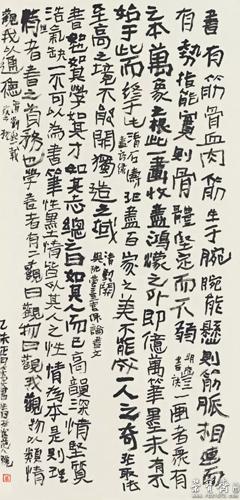 書有筋骨血肉筋生于腕腕能懸則筋脈相連而
有勢指能實則骨體堅定而不弱一画者衆有
之本萬象之根此一畫收盡鴻濛之外即億萬筆墨未有不
始于此而終于此清石濤非盡百家之美不能成一人之奇非取法
至高之境不能開獨造之域清劉開與阮芸臺宮保論文
書如其學如其才如其志總之曰如其人而已高韻深情堅質
浩氣缺一不可以為書筆性墨情皆以其人之性情為本是則理性
情者書之首務也學書者有二觀曰觀物曰觀我觀物以類情
觀我以通德清劉熙載
乙未